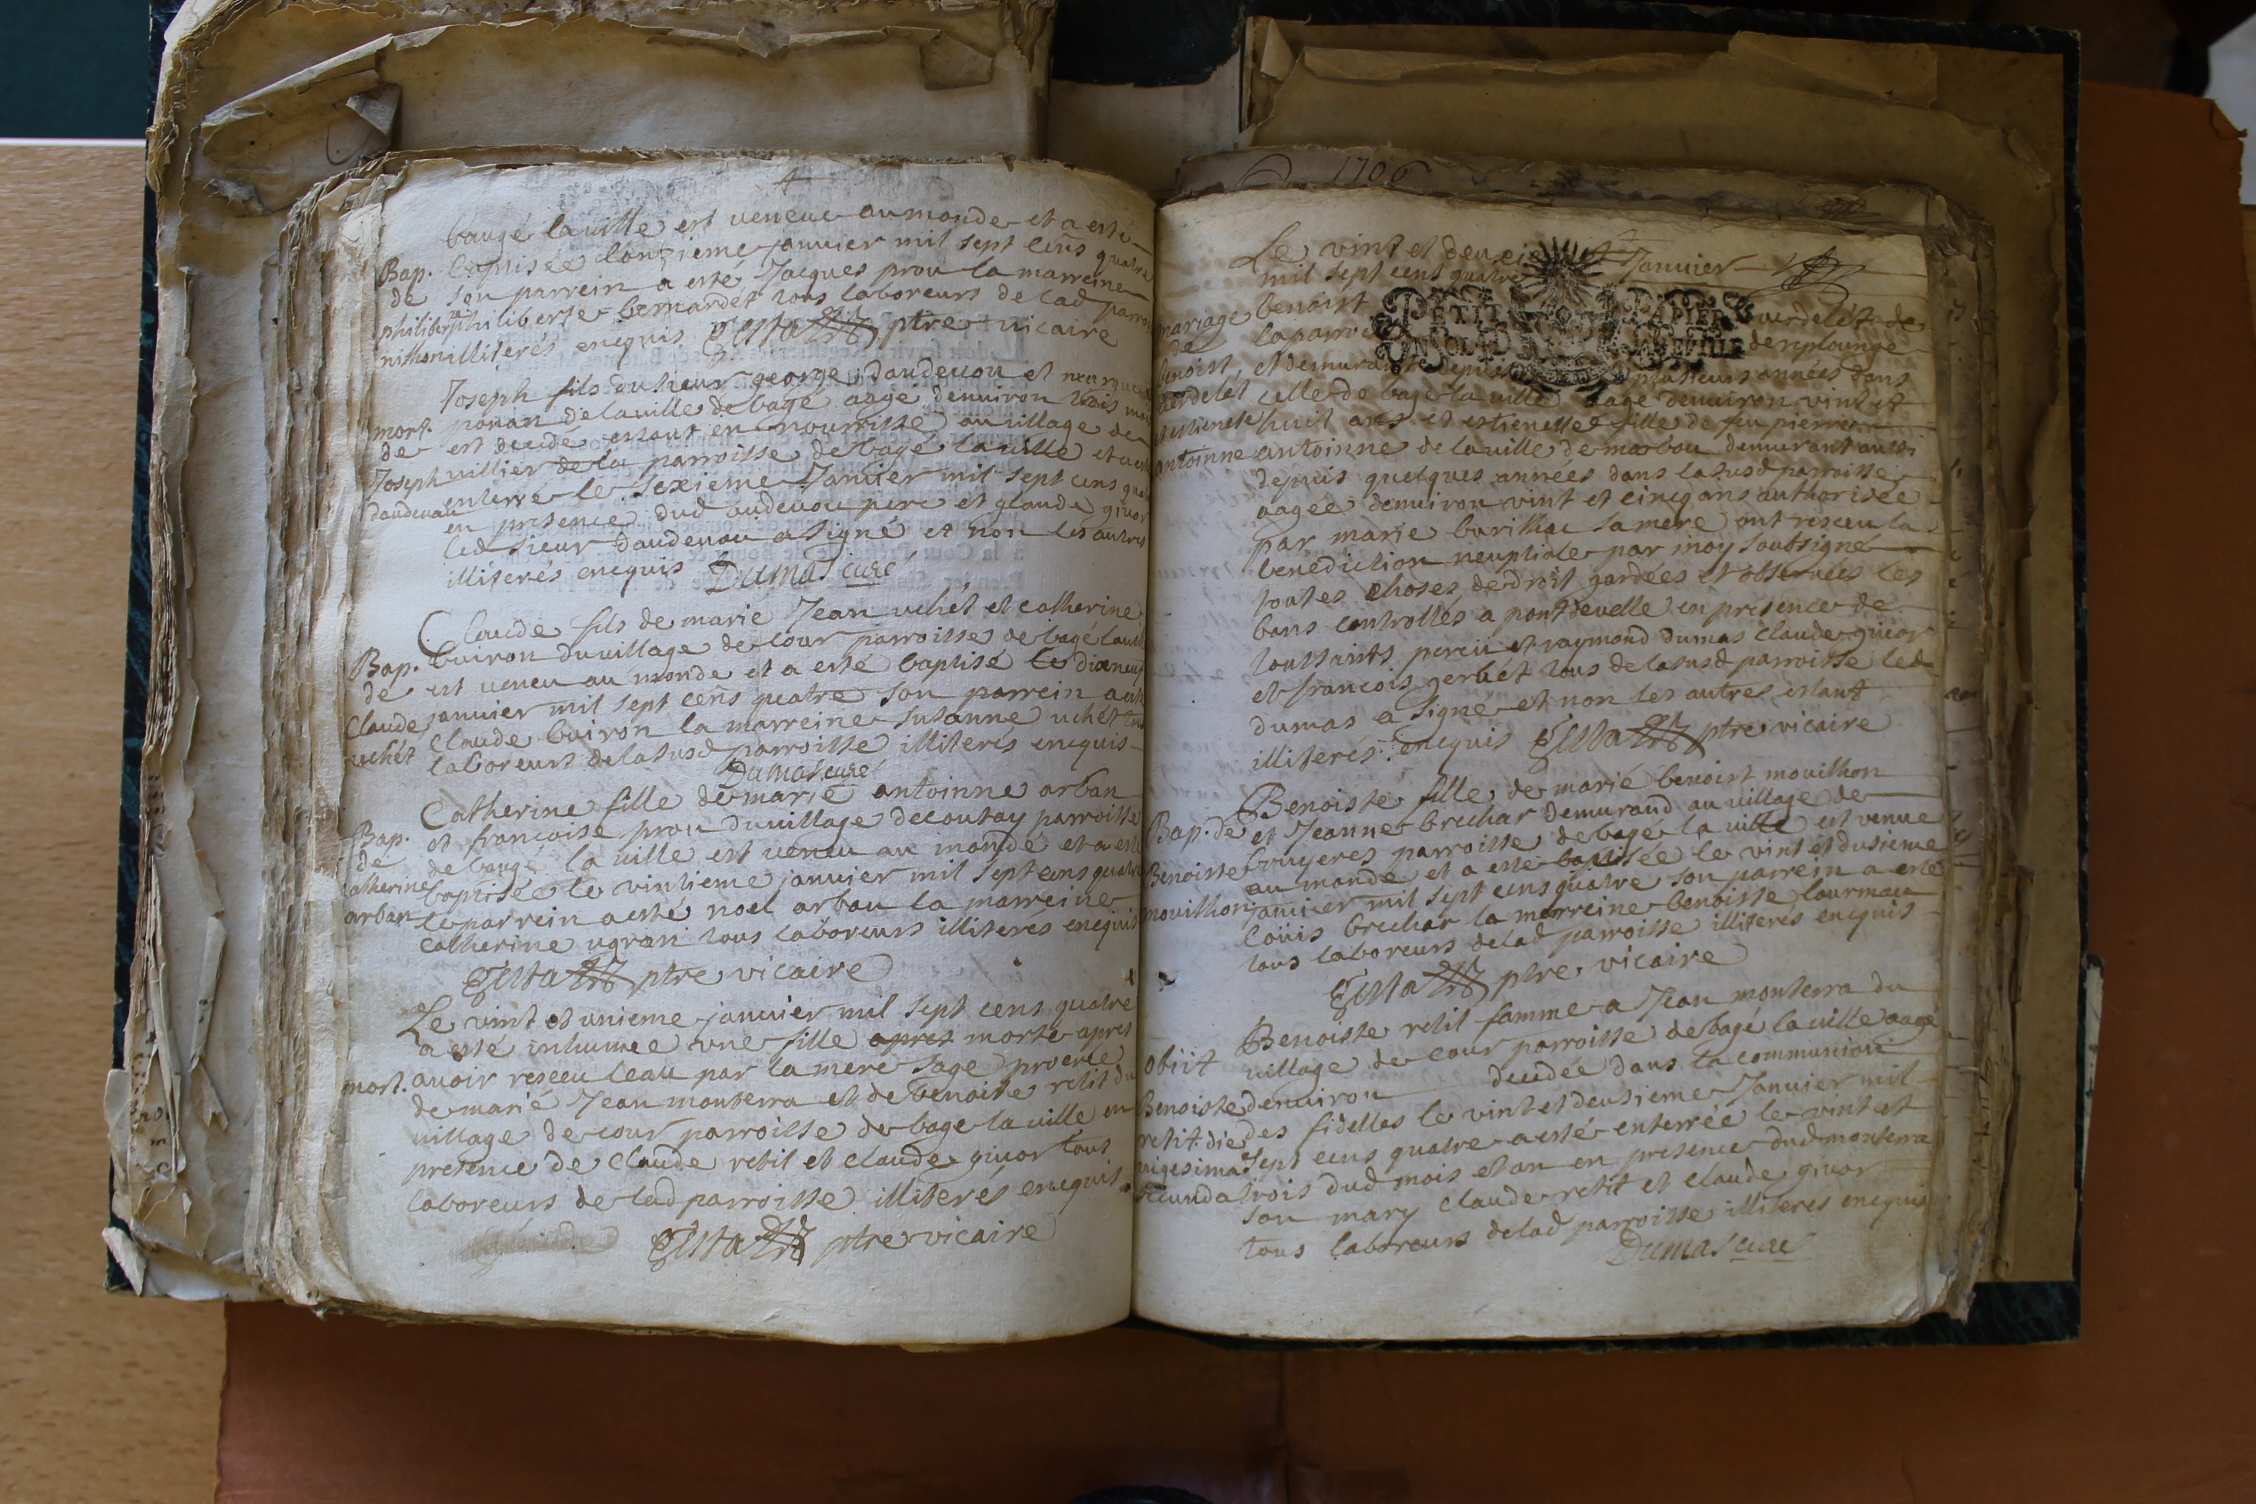 baugé la ville est veneue au monde et a esté
Bap. baptisée lonzieme januier mil sept cens quatre
de son parrein a esté Jacques prou la marreine
philiberte philiberte bernardet tous laboreurs de lad parroi
nithon illiterés encquis ptre vicaire
Joseph fils du sieur george daudenou et
de la ville de bagé aagé denuiron trois mois
mort. est decedé estant en nourrisse au village de
de villier de la parroisse de bagé la ville et a esté
Joseph enterré le sexieme Januier mil sept cens qua
daudenou en presence dud audenou pere et glaude giuor
led sieur daudenou a signé et non les autres
illiterés encquis Dumas curé
Claude fils de marie Jean uchét et catherine
buiron du village de cour parroisse de bagé la uil
Bap. est veneu au monde et a esté baptisé le dixneuf
de januier mil sept cens quatre son parrein a esté
Claude claude buiron la marreine susanne uchét tous
uchét laboreurs de la susd parroisse illiterés encquis
Dumas curé
Catherine fille de marié antoinne arban
et francoise prou du village de coutay parroisse
Bap. de baugé la ville est veneu au monde et a esté
de baptisée le vintieme januier mil sept cens quatre
catherine le parrein a esté noel arban la marreine
arban catherine ugran tous laboreurs illiterés encquis
ptre vicaire
Le vint et unieme januier mil sept cens quatre
a esté inhumee une fille apres morte apres
mort. auoir resceu leau par la mere sage proenee
de marié Jean monterra et de benoite retit du
village de cour parroisse de bage la uille en
presence de Claude retit et claude giuor tous
laboreurs de lad parroisse illiterés encquis
ptre vicaire
1706
Le vint et deuxie Januier
mil sept cens quatre
PETIT PAPIER
mariage benoist verdelet de
de la parroi de replounge
benoist, et demurant depuis plusieurs années dans
verdelet celle de bagé la ville aagé denuiron vint et
et estienette huit ans et estienette fille de feu pierre
antoinne antoinne de la ville de marbou demurant aussi
depuis quelques années dans la susd parroisse
aagée denuiron vint et cincq ans authorisée
par marie burilhac sa mere ont resceu la
benediction neuptiale par moy soubsigné
toutes choses de droit gardées et obseruées les
bans controllés a pontdeuelle en présence de
toussaints perein et raymond dumas claude giuor
et francois gerbét tous de la susd parroisse led
dumas a signé et non les autres estant
illiterés encquis ptre vicaire
Benoiste fille de marié benoist mouilhon
Bap. de et Jeanne brechar demurand au village de
bruyeres parroisse de bage la ville est venue
Benoiste au monde et a esté baptisée le vint et dusieme
mouilhon januier mil sept cens quatre son parrein a esté
Loüis brechar la marreine benoiste lourmau
tous laboreurs de lad parroisse illiterés encquis
ptre vicaire
Benoiste retit famme a Jean monterra du
obiit village de cour parroisse de bagé la uille aagé
Benoiste denuiron decedée dans la communion
retit die des fidelles le vint et deusieme Januier mil
uigesima sept cens quatre a esté enterrée le vint et
secunda trois dud mois et an en presence dud monterra
son mary claude retit et claude giuor
tous laboreurs de lad parroisse illiterés encquis
Dumas curé